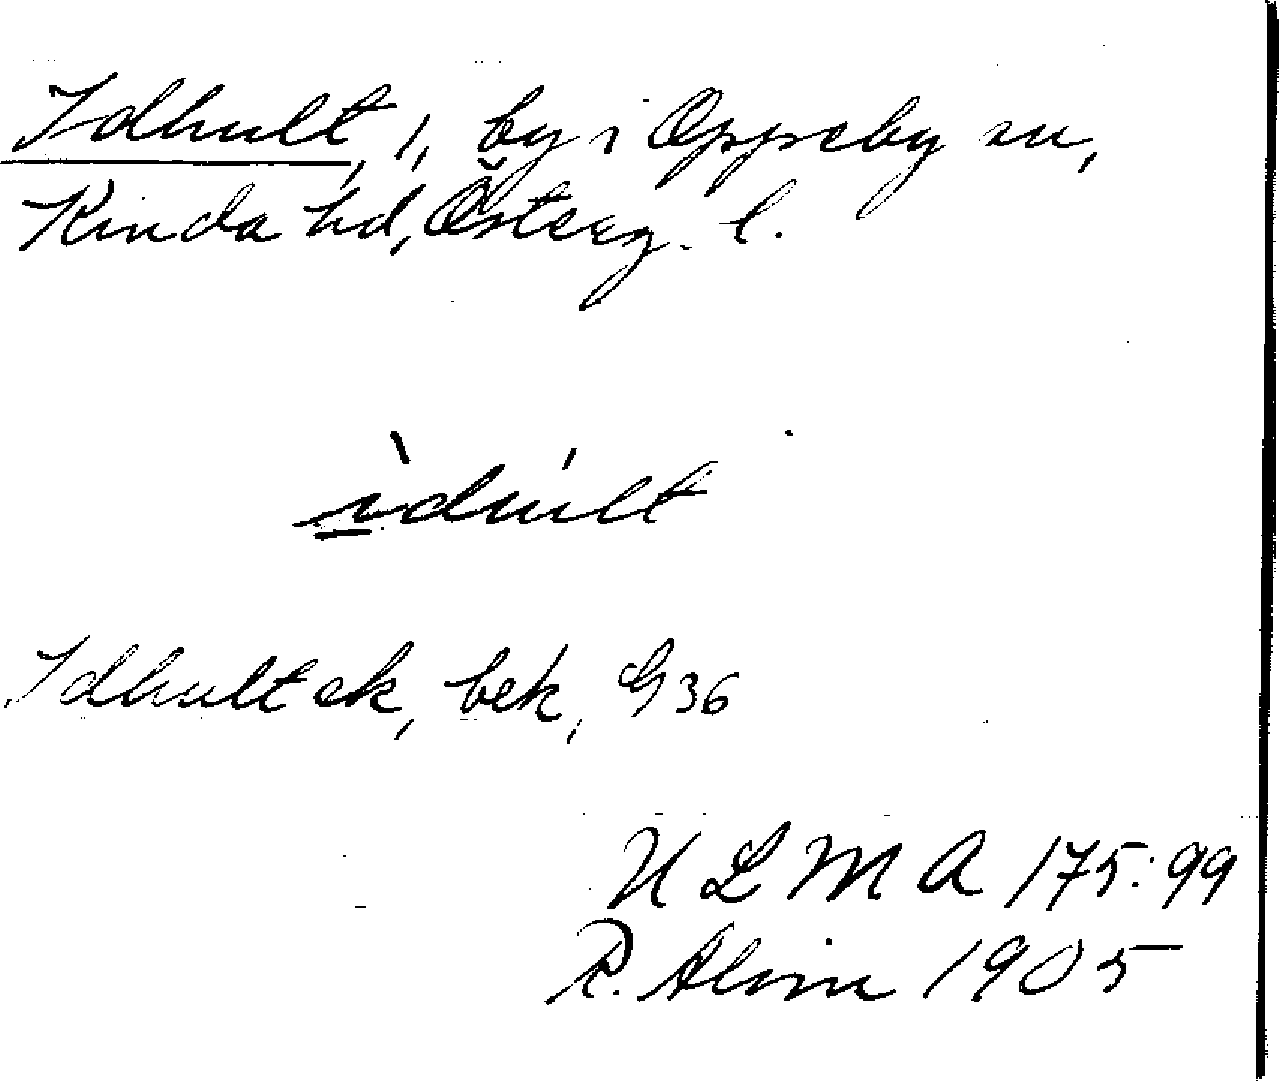 Idhult, 1, by i Oppeby sn,
Kinda hd, Österg. l.
ìdúlt
Idhult ek, bek, G 36
U L M A 175:99
R. Alvin 1905